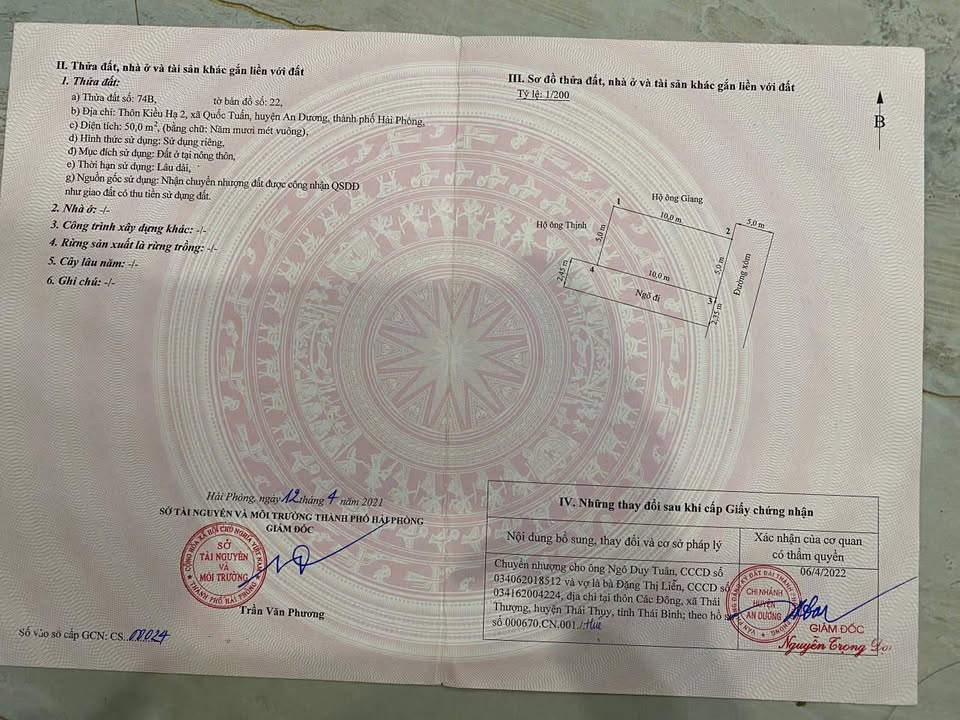 II. Thửa đất, nhà ở và tài sản khác gắn liền với đất
1. Thửa đất:
a) Thửa đất số: 74B, tờ bản đồ số: 22,
b) Địa chỉ: Thôn Kiều Hạ 2, xã Quốc Tuấn, huyện An Dương, thành phố Hải Phòng,
c) Diện tích: 50,0 m², (bằng chữ: Năm mươi mét vuông),
d) Hình thức sử dụng: Sử dụng riêng,
đ) Mục đích sử dụng: Đất ở tại nông thôn,
e) Thời hạn sử dụng: Lâu dài,
g) Nguồn gốc sử dụng: Nhận chuyển nhượng đất được công nhận QSDĐ
như giao đất có thu tiền sử dụng đất.
2. Nhà ở: -/-
3. Công trình xây dựng khác: -/-
4. Rừng sản xuất là rừng trồng: -/-
5. Cây lâu năm: -/-
6. Ghi chú: -/-
Hải Phòng, ngày 12 tháng 4 năm 2021
SỞ TÀI NGUYÊN VÀ MÔI TRƯỜNG THÀNH PHỐ HẢI PHÒNG
GIÁM ĐỐC
CỘNG HÒA XÃ HỘI CHỦ NGHĨA VIỆT NAM
SỞ
TÀI NGUYÊN
VÀ
MÔI TRƯỜNG
THÀNH PHỐ HẢI PHÒNG
Trần Văn Phương
Số vào sổ cấp GCN: CS
III. Sơ đồ thửa đất, nhà ở và tài sản khác gắn liền với đất
Tỷ lệ: 1/200
B
Hộ ông Giang
1
10,0 m
2
5,0 m
Hộ ông Thịnh
5,0 m
5,0 m
Đường xóm
2,45 m
4
10,0 m
3
Ngõ đi
2,35 m
IV. Những thay đổi sau khi cấp Giấy chứng nhận
Nội dung bổ sung, thay đổi và cơ sở pháp lý
Xác nhận của cơ quan
có thẩm quyền
Chuyển nhượng cho ông Ngô Duy Tuân, CCCD số
034062018512 và vợ là bà Đặng Thị Liễn, CCCD số
034162004224, địa chỉ tại thôn Các Đông, xã Thái
Thượng, huyện Thái Thụy, tỉnh Thái Bình; theo hồ sơ
số 000670.CN.001 /Huê
06/4/2022
CHI NHÁNH
HUYỆN
AN DƯƠNG
GIÁM ĐỐC
Nguyễn Trọng